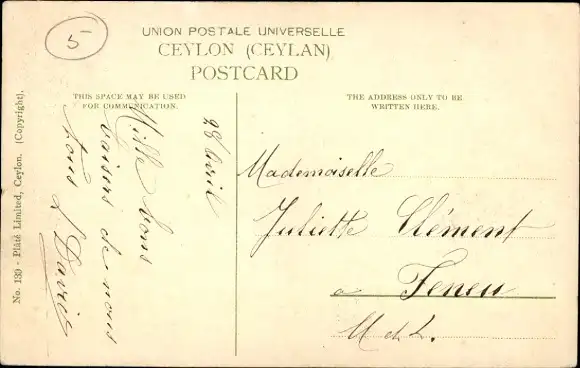 5
UNION POSTALE UNIVERSELLE
CEYLON (CEYLAN)
POSTCARD
THIS SPACE MAY BE USED
FOR COMMUNICATION.
THE ADDRESS ONLY TO BE
WRITTEN HERE.
28 Avril
Mille bons
baisers de nous
tous
Mademoiselle
Juliette Clément
a Feneu
M et L.
No. 130 - Plâté Limited, Ceylon. (Copyright).